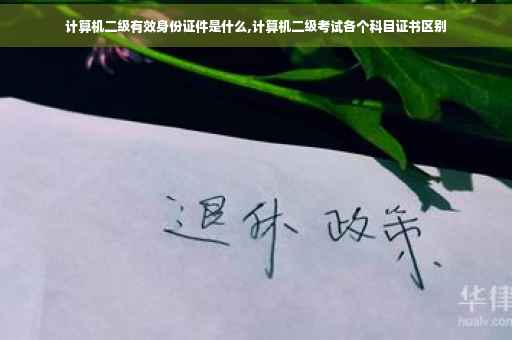 计算机二级有效身份证件是什么,计算机二级考试各个科目证书区别
退休 政策
华律
hualv.com